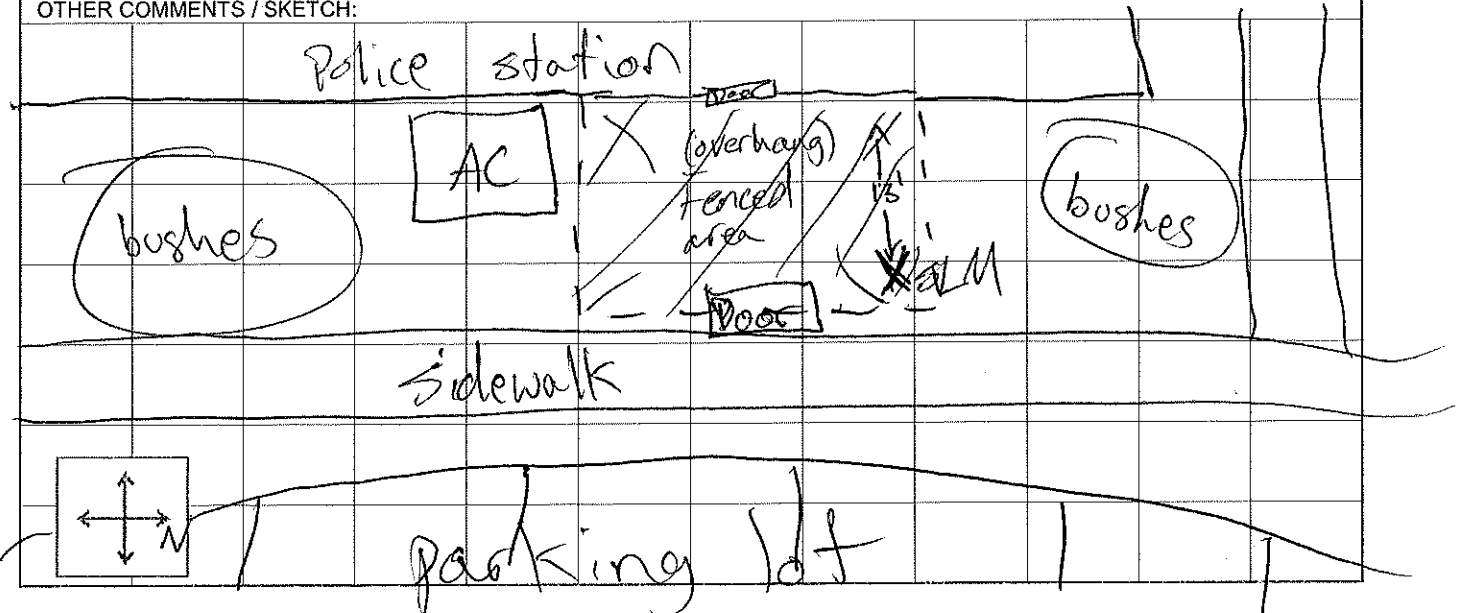 OTHER COMMENTS / SKETCH:
Police station
Door
AC
(overhang)
Fenced
area
15'
bushes
bushes
SLM
Door
sidewalk
N
parking lot